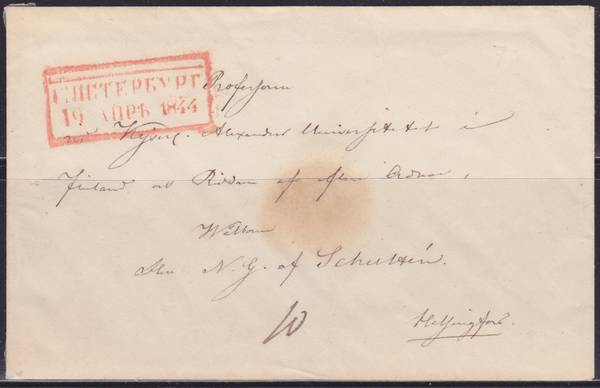 С.ПЕТЕРБУРГ
19 АПРѢ 1844
Professorn
vid Kejserl. Alexanders Universitetet i
Finland och Riddaren af
Herr N. G. af Schultén.
10
Helsingfors.